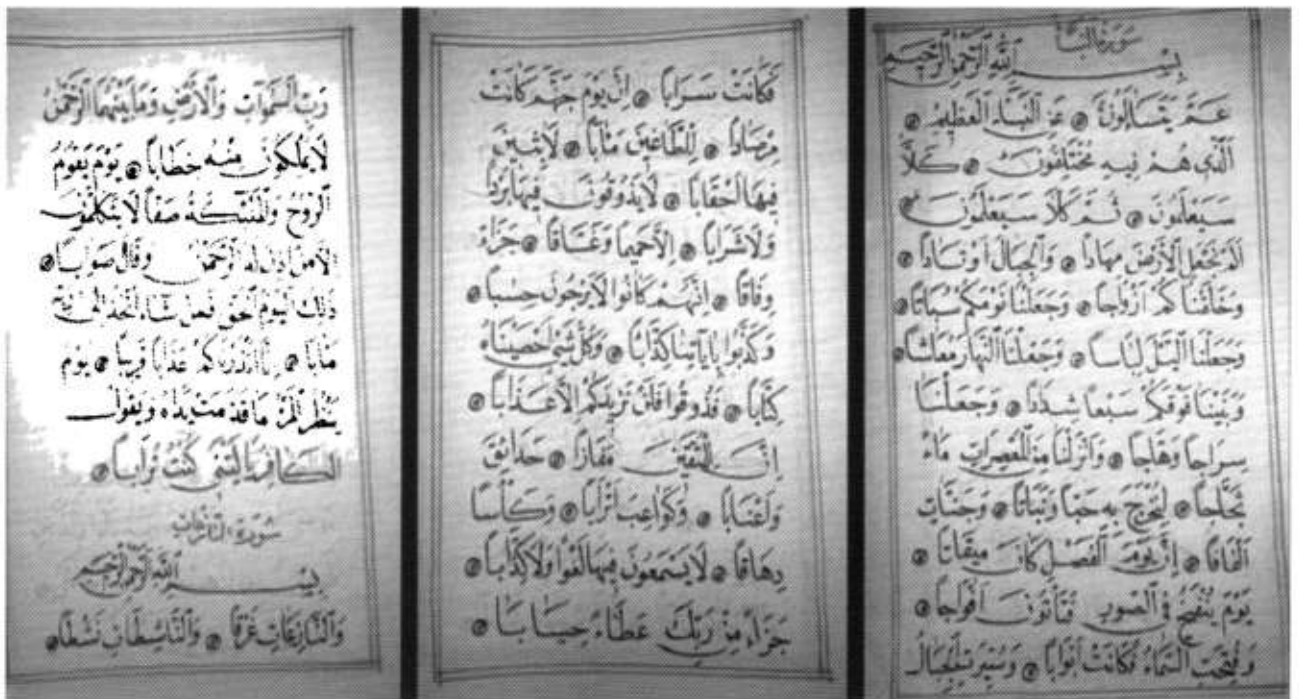 سورة النبأ
بسم الله الرحمن الرحيم
عَمَّ يَتَسَاءَلُونَ عَنِ النَّبَإِ الْعَظِيمِ
الَّذِي هُمْ فِيهِ مُخْتَلِفُونَ كَلَّا
سَيَعْلَمُونَ ثُمَّ كَلَّا سَيَعْلَمُونَ
أَلَمْ نَجْعَلِ الْأَرْضَ مِهَادًا وَالْجِبَالَ أَوْتَادًا
وَخَلَقْنَاكُمْ أَزْوَاجًا وَجَعَلْنَا نَوْمَكُمْ سُبَاتًا
وَجَعَلْنَا اللَّيْلَ لِبَاسًا وَجَعَلْنَا النَّهَارَ مَعَاشًا
وَبَنَيْنَا فَوْقَكُمْ سَبْعًا شِدَادًا وَجَعَلْنَا
سِرَاجًا وَهَّاجًا وَأَنْزَلْنَا مِنَ الْمُعْصِرَاتِ مَاءً
ثَجَّاجًا لِنُخْرِجَ بِهِ حَبًّا وَنَبَاتًا وَجَنَّاتٍ
أَلْفَافًا إِنَّ يَوْمَ الْفَصْلِ كَانَ مِيقَاتًا
يَوْمَ يُنْفَخُ فِي الصُّورِ فَتَأْتُونَ أَفْوَاجًا
وَفُتِحَتِ السَّمَاءُ فَكَانَتْ أَبْوَابًا وَسُيِّرَتِ الْجِبَالُ
فَكَانَتْ سَرَابًا إِنَّ يَوْمَ جَهَنَّمَ كَانَتْ
مِرْصَادًا لِلطَّاغِينَ مَآبًا لَابِثِينَ
فِيهَا أَحْقَابًا لَا يَذُوقُونَ فِيهَا بَرْدًا
وَلَا شَرَابًا إِلَّا حَمِيمًا وَغَسَّاقًا جَزَاءً
وِفَاقًا إِنَّهُمْ كَانُوا لَا يَرْجُونَ حِسَابًا
وَكَذَّبُوا بِآيَاتِنَا كِذَّابًا وَكُلَّ شَيْءٍ أَحْصَيْنَاهُ
كِتَابًا فَذُوقُوا فَلَنْ نَزِيدَكُمْ إِلَّا عَذَابًا
إِنَّ لِلْمُتَّقِينَ مَفَازًا حَدَائِقَ
وَأَعْنَابًا وَكَوَاعِبَ أَتْرَابًا وَكَأْسًا
دِهَاقًا لَا يَسْمَعُونَ فِيهَا لَغْوًا وَلَا كِذَّابًا
جَزَاءً مِنْ رَبِّكَ عَطَاءً حِسَابًا
رَبِّ السَّمٰوَاتِ وَالْأَرْضِ وَمَا بَيْنَهُمَا الرَّحْمٰنِ
لَا يَمْلِكُونَ مِنْهُ خِطَابًا يَوْمَ يَقُومُ
الرُّوحُ وَالْمَلٰئِكَةُ صَفًّا لَا يَتَكَلَّمُونَ
إِلَّا مَنْ أَذِنَ لَهُ الرَّحْمٰنُ وَقَالَ صَوَابًا
ذٰلِكَ الْيَوْمُ الْحَقُّ فَمَنْ شَاءَ اتَّخَذَ إِلَىٰ رَبِّهِ
مَآبًا إِنَّا أَنْذَرْنَاكُمْ عَذَابًا قَرِيبًا يَوْمَ
يَنْظُرُ الْمَرْءُ مَا قَدَّمَتْ يَدَاهُ وَيَقُولُ
الْكَافِرُ يَا لَيْتَنِي كُنْتُ تُرَابًا
سورة النازعات
بسم الله الرحمن الرحيم
وَالنَّازِعَاتِ غَرْقًا وَالنَّاشِطَاتِ نَشْطًا